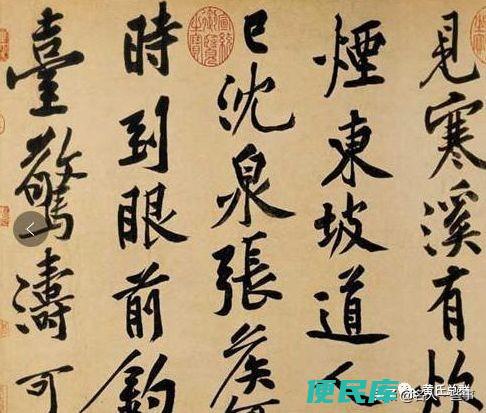 見寒溪有炊
煙東坡道人
已沈泉張侯
時到眼前釣
臺驚濤可
便民库